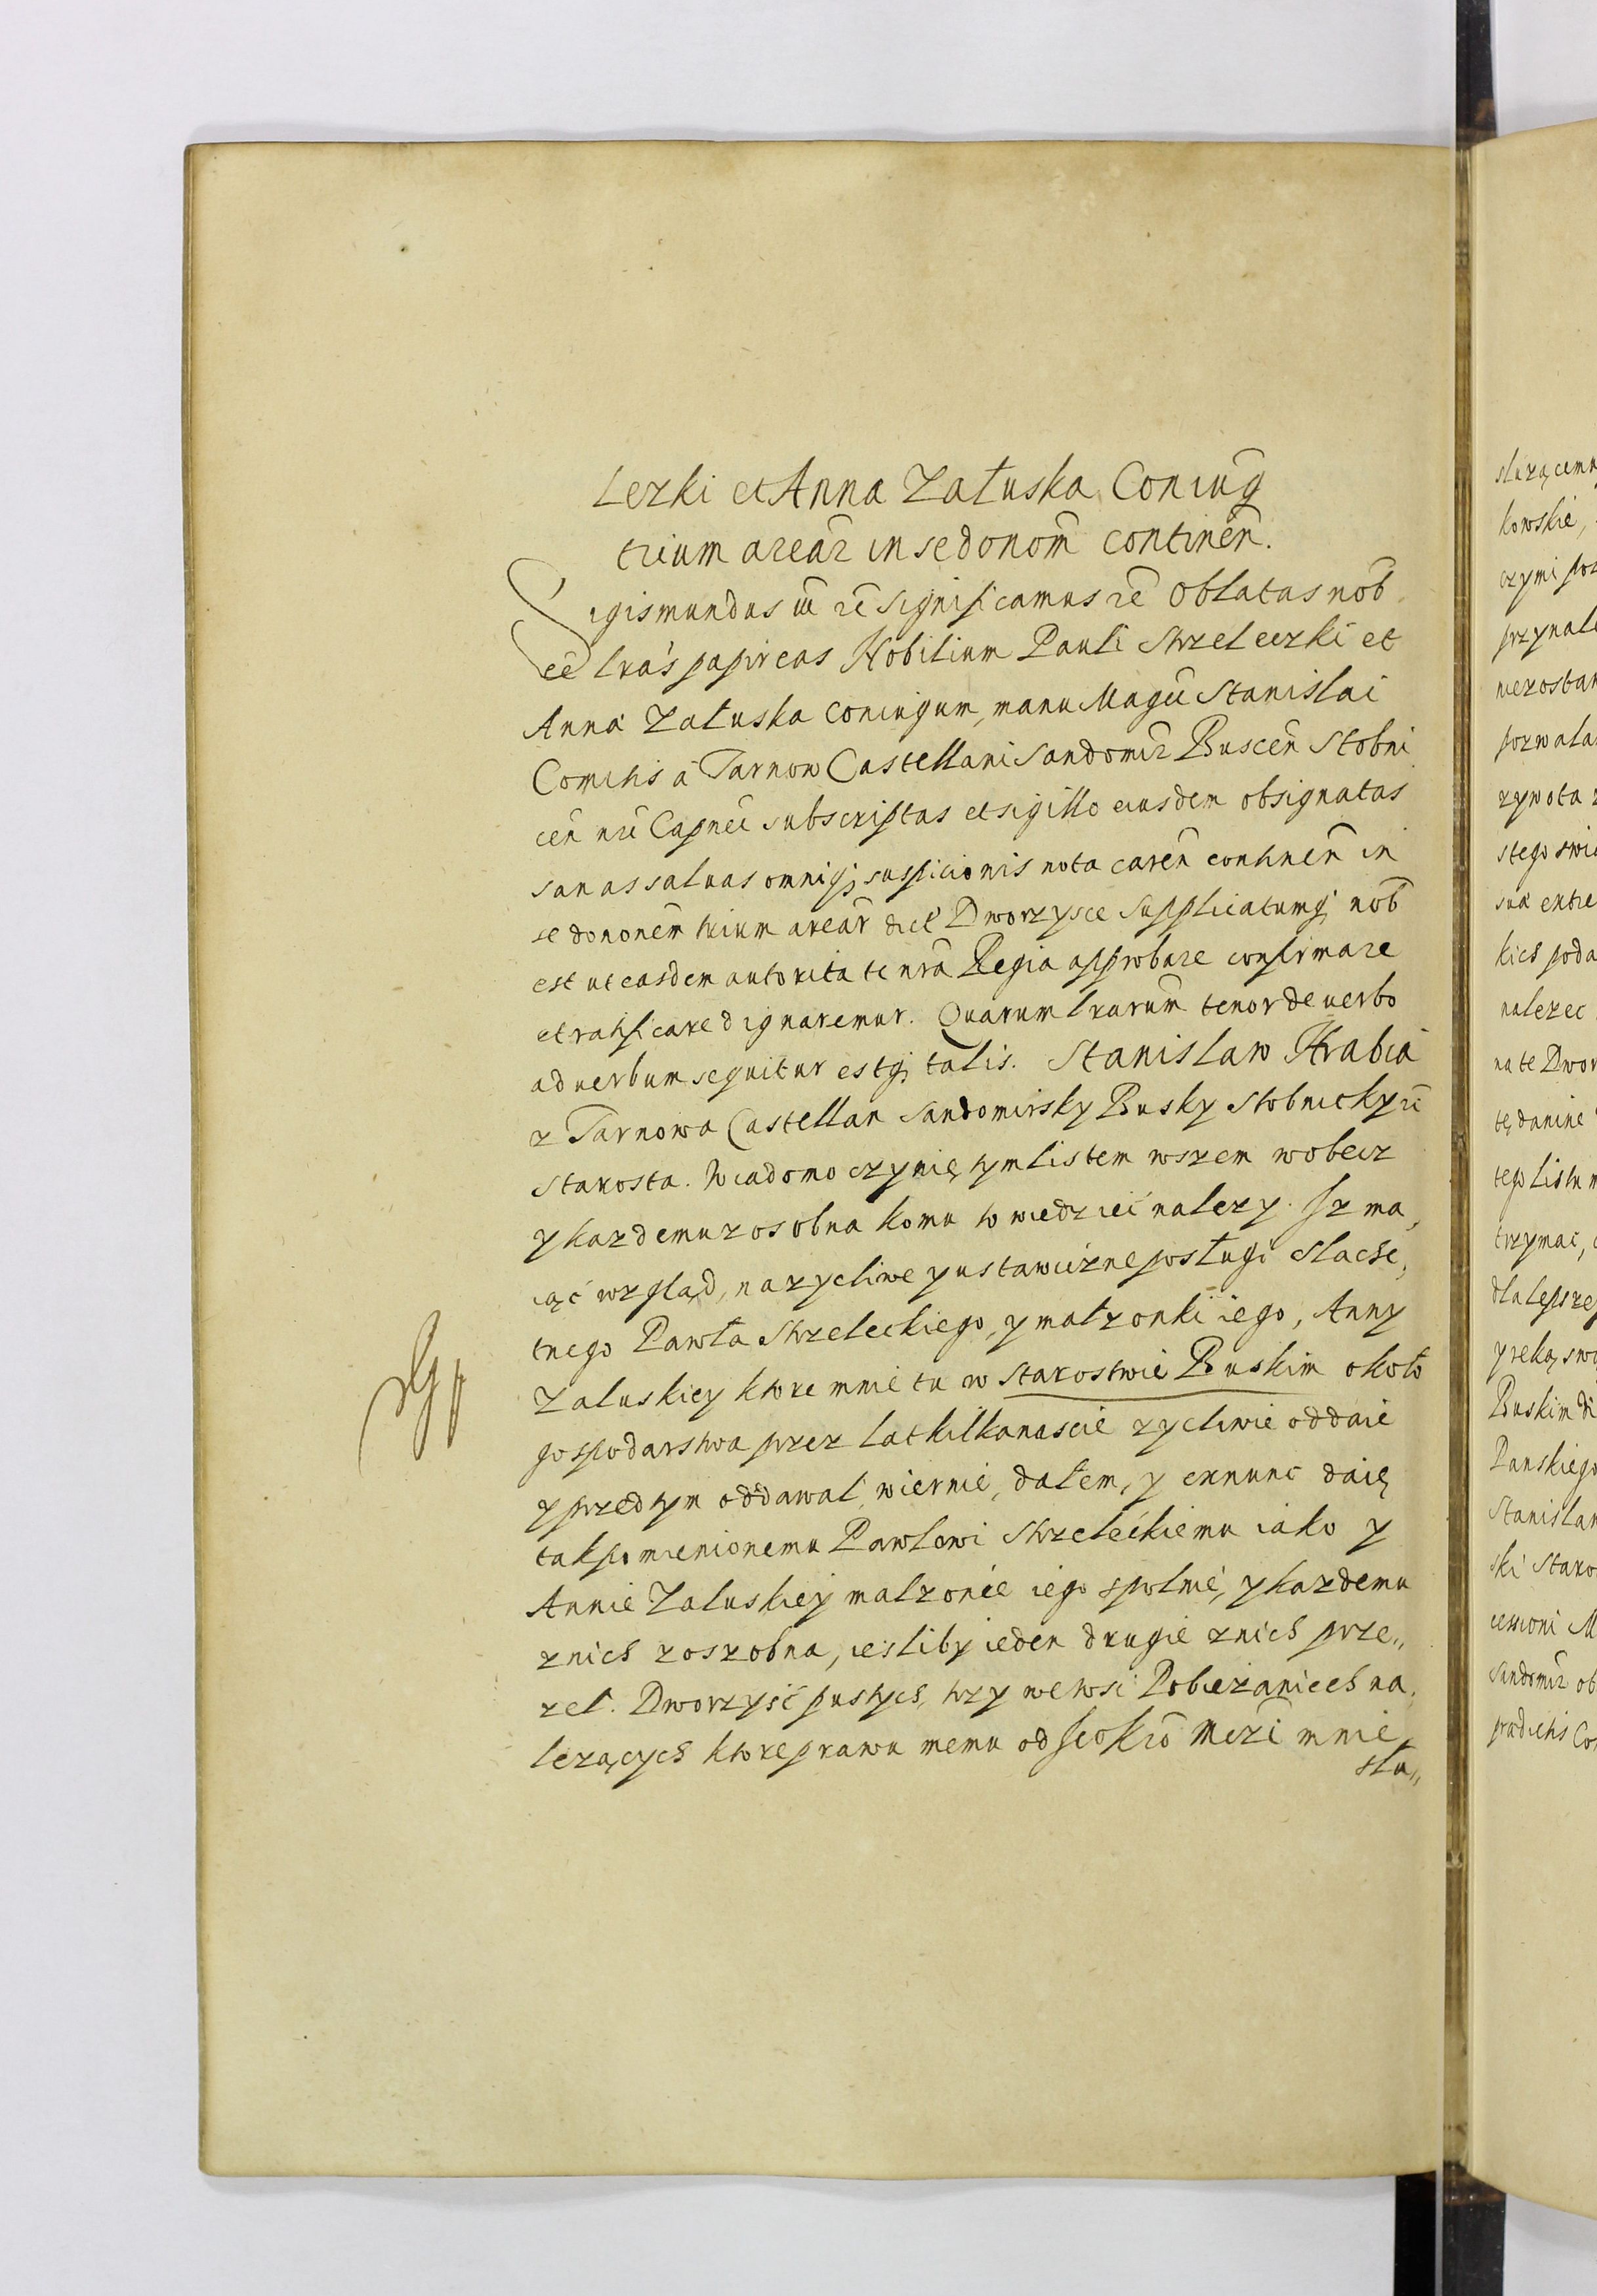 Lezki et Anna Załuska Coniug̃
trium arear̃ in se donom̃ continen̄.
Sigismundus iii rē significamus rē Oblatas nob̄
eē lrās papireas Nobilium Pauli Strzeleczki et
Anna Załuska coniugum, manu Magci Stanislai
Comitis a Tarnow Castellani Sandomir̃ Buscen̄ Stobni
cen̄ nri Capnei subscriptas et sigillo eiusdem obsignatas
sanas saluas omniq; suspicionis nota caren̄ continen̄ in
se dononem̄ trium arear̃ dict Dworzysce Supplicatumq; nob̄
est ut easdem autoritate nrā Regia approbare confirmare
et ratificare dignaremur. Quarum lrarum tenor de uerbo
ad uerbum sequitur estq; talis. Stanislaw Hrabia
z Tarnowa Castellan Sandomirsky Busky Stobnicky rē
Starosta. Wiadomo czynię tym listem wszem wobecz
y kazdemu z osobna komu to wiedzieć nalezy. Iz ma,
iąć wzgląd, na zycliwe y ustawiczne posługi Slache,
tnego Pawła Strzeleckiego, y małzonki iego, Anny
Zaluskiey ktore mnie tu w Starostwie Buskim około
gospodarstwa przez lat kilkanascie zycliwie oddaie
y przed tym oddawał, wiernie, dałem, y exnunc daię
tak pomienionemu Pawłowi Strzeleckiemu iako y
Annie Zaluskiey malzonce iego społnie, y kazdemu
z nich z oszobna, iesliby ieden drugie z nich prze„
zel. Dworzysć pustych, trzy we wsi Pobiezanicch na,
lezących ktore prawu memu od Jeo Kro Mczi mnie
słu„